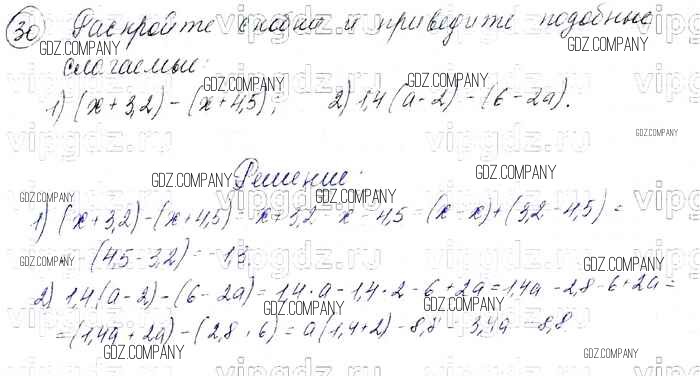 30 Раскройте скобки и приведите подобные
слагаемые:
1) (x+3,2) - (x+4,5);  2) 1,4(a-2) - (6-2a).
Решение:
1) (x+3,2) - (x+4,5) = x+3,2 - x - 4,5 = (x-x)+(3,2-4,5) =
= -(4,5-3,2) = -1,3.
2) 1,4(a-2) - (6-2a) = 1,4·a - 1,4·2 - 6 + 2a = 1,4a - 2,8 - 6 + 2a =
= (1,4a + 2a) - (2,8 + 6) = a(1,4+2) - 8,8 = 3,4a - 8,8.
GDZ.COMPANY
vipgdz.ru